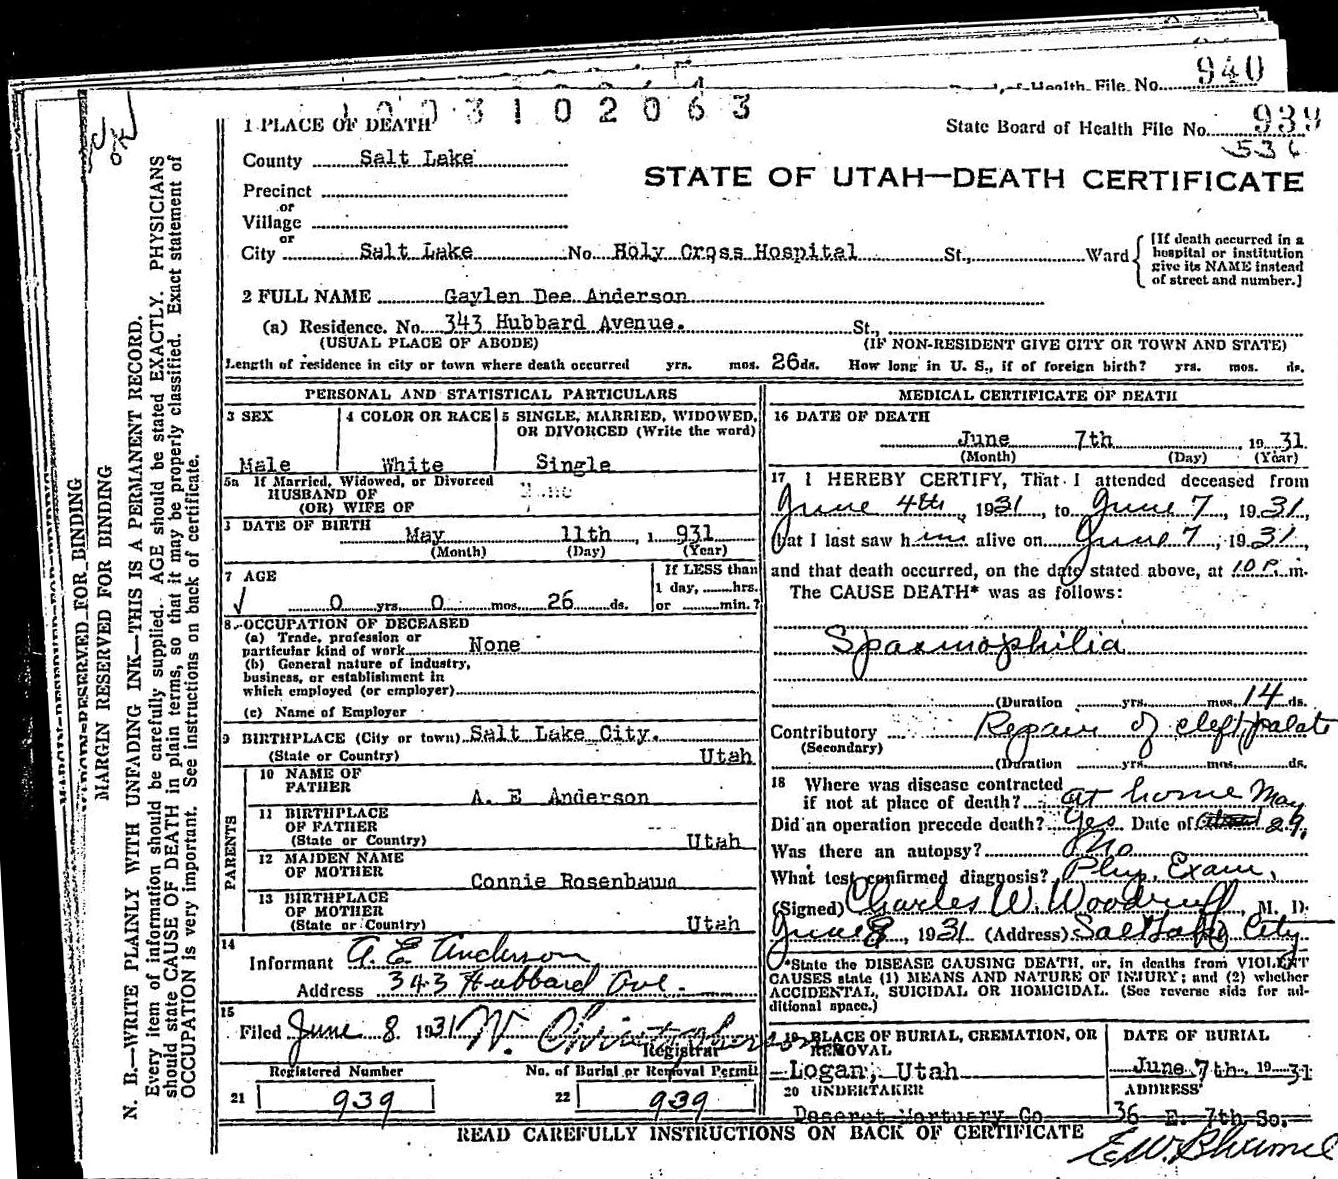 940
of Health File No.
1003102063
1 PLACE OF DEATH
State Board of Health File No. 939
536
County Salt Lake
STATE OF UTAH—DEATH CERTIFICATE
Precinct
or
Village
or
City Salt Lake No. Holy Cross Hospital St., Ward
[If death occurred in a
hospital or institution
give its NAME instead
of street and number.]
2 FULL NAME Gaylen Dee Anderson
(a) Residence. No. 343 Hubbard Avenue. St.,
(USUAL PLACE OF ABODE) (IF NON-RESIDENT GIVE CITY OR TOWN AND STATE)
Length of residence in city or town where death occurred yrs. mos. 26 ds. How long in U. S., if of foreign birth? yrs. mos. ds.
PERSONAL AND STATISTICAL PARTICULARS
3 SEX
Male
4 COLOR OR RACE
White
5 SINGLE, MARRIED, WIDOWED,
OR DIVORCED (Write the word)
Single
5a If Married, Widowed, or Divorced
HUSBAND OF
(OR) WIFE OF
DATE OF BIRTH
May 11th, 1 931
(Month) (Day) (Year)
7 AGE
0 yrs. 0 mos. 26 ds.
If LESS than
1 day, hrs.
or min.?
8 OCCUPATION OF DECEASED
(a) Trade, profession or
particular kind of work None
(b) General nature of industry,
business, or establishment in
which employed (or employer)
(c) Name of Employer
9 BIRTHPLACE (City or town) Salt Lake City.
(State or Country) Utah
PARENTS
10 NAME OF
FATHER
A. E Anderson
11 BIRTHPLACE
OF FATHER
(State or Country) Utah
12 MAIDEN NAME
OF MOTHER
Connie Rosenbaum
13 BIRTHPLACE
OF MOTHER
(State or Country) Utah
14
Informant A. E. Anderson
Address 343 Hubbard Ave.
15
Filed June 8 1931 W. Christopherson
Registrar
Registered Number
21 939
No. of Burial or Removal Permit
22 939
MEDICAL CERTIFICATE OF DEATH
16 DATE OF DEATH
June 7th 19 31
(Month) (Day) (Year)
17 I HEREBY CERTIFY, That I attended deceased from
June 4th, 1931, to June 7, 1931,
that I last saw him alive on June 7, 1931,
and that death occurred, on the date stated above, at 10 P. m.
The CAUSE DEATH* was as follows:
Spasmophilia
(Duration yrs. mos. 14 ds.
Contributory Repair of cleft palate
(Secondary)
(Duration yrs. mos. ds.
18 Where was disease contracted
if not at place of death? at home May
Did an operation precede death? Yes Date of 29,
Was there an autopsy? No
What test confirmed diagnosis? Phys. Exam.
(Signed) Charles W. Woodruff, M. D.
June 8, 1931 (Address) Salt Lake City
*State the DISEASE CAUSING DEATH, or, in deaths from VIOLENT
CAUSES state (1) MEANS AND NATURE OF INJURY; and (2) whether
ACCIDENTAL, SUICIDAL OR HOMICIDAL. (See reverse side for ad-
ditional space.)
19 PLACE OF BURIAL, CREMATION, OR
REMOVAL
Logan, Utah
DATE OF BURIAL
June 7th, 19 31
20 UNDERTAKER
Deseret Mortuary Co
ADDRESS
36 E. 7th So.
READ CAREFULLY INSTRUCTIONS ON BACK OF CERTIFICATE
MARGIN RESERVED FOR BINDING
N. B.—WRITE PLAINLY WITH UNFADING INK—THIS IS A PERMANENT RECORD.
Every item of information should be carefully supplied. AGE should be stated EXACTLY. PHYSICIANS
should state CAUSE OF DEATH in plain terms, so that it may be properly classified. Exact statement of
OCCUPATION is very important. See instructions on back of certificate.